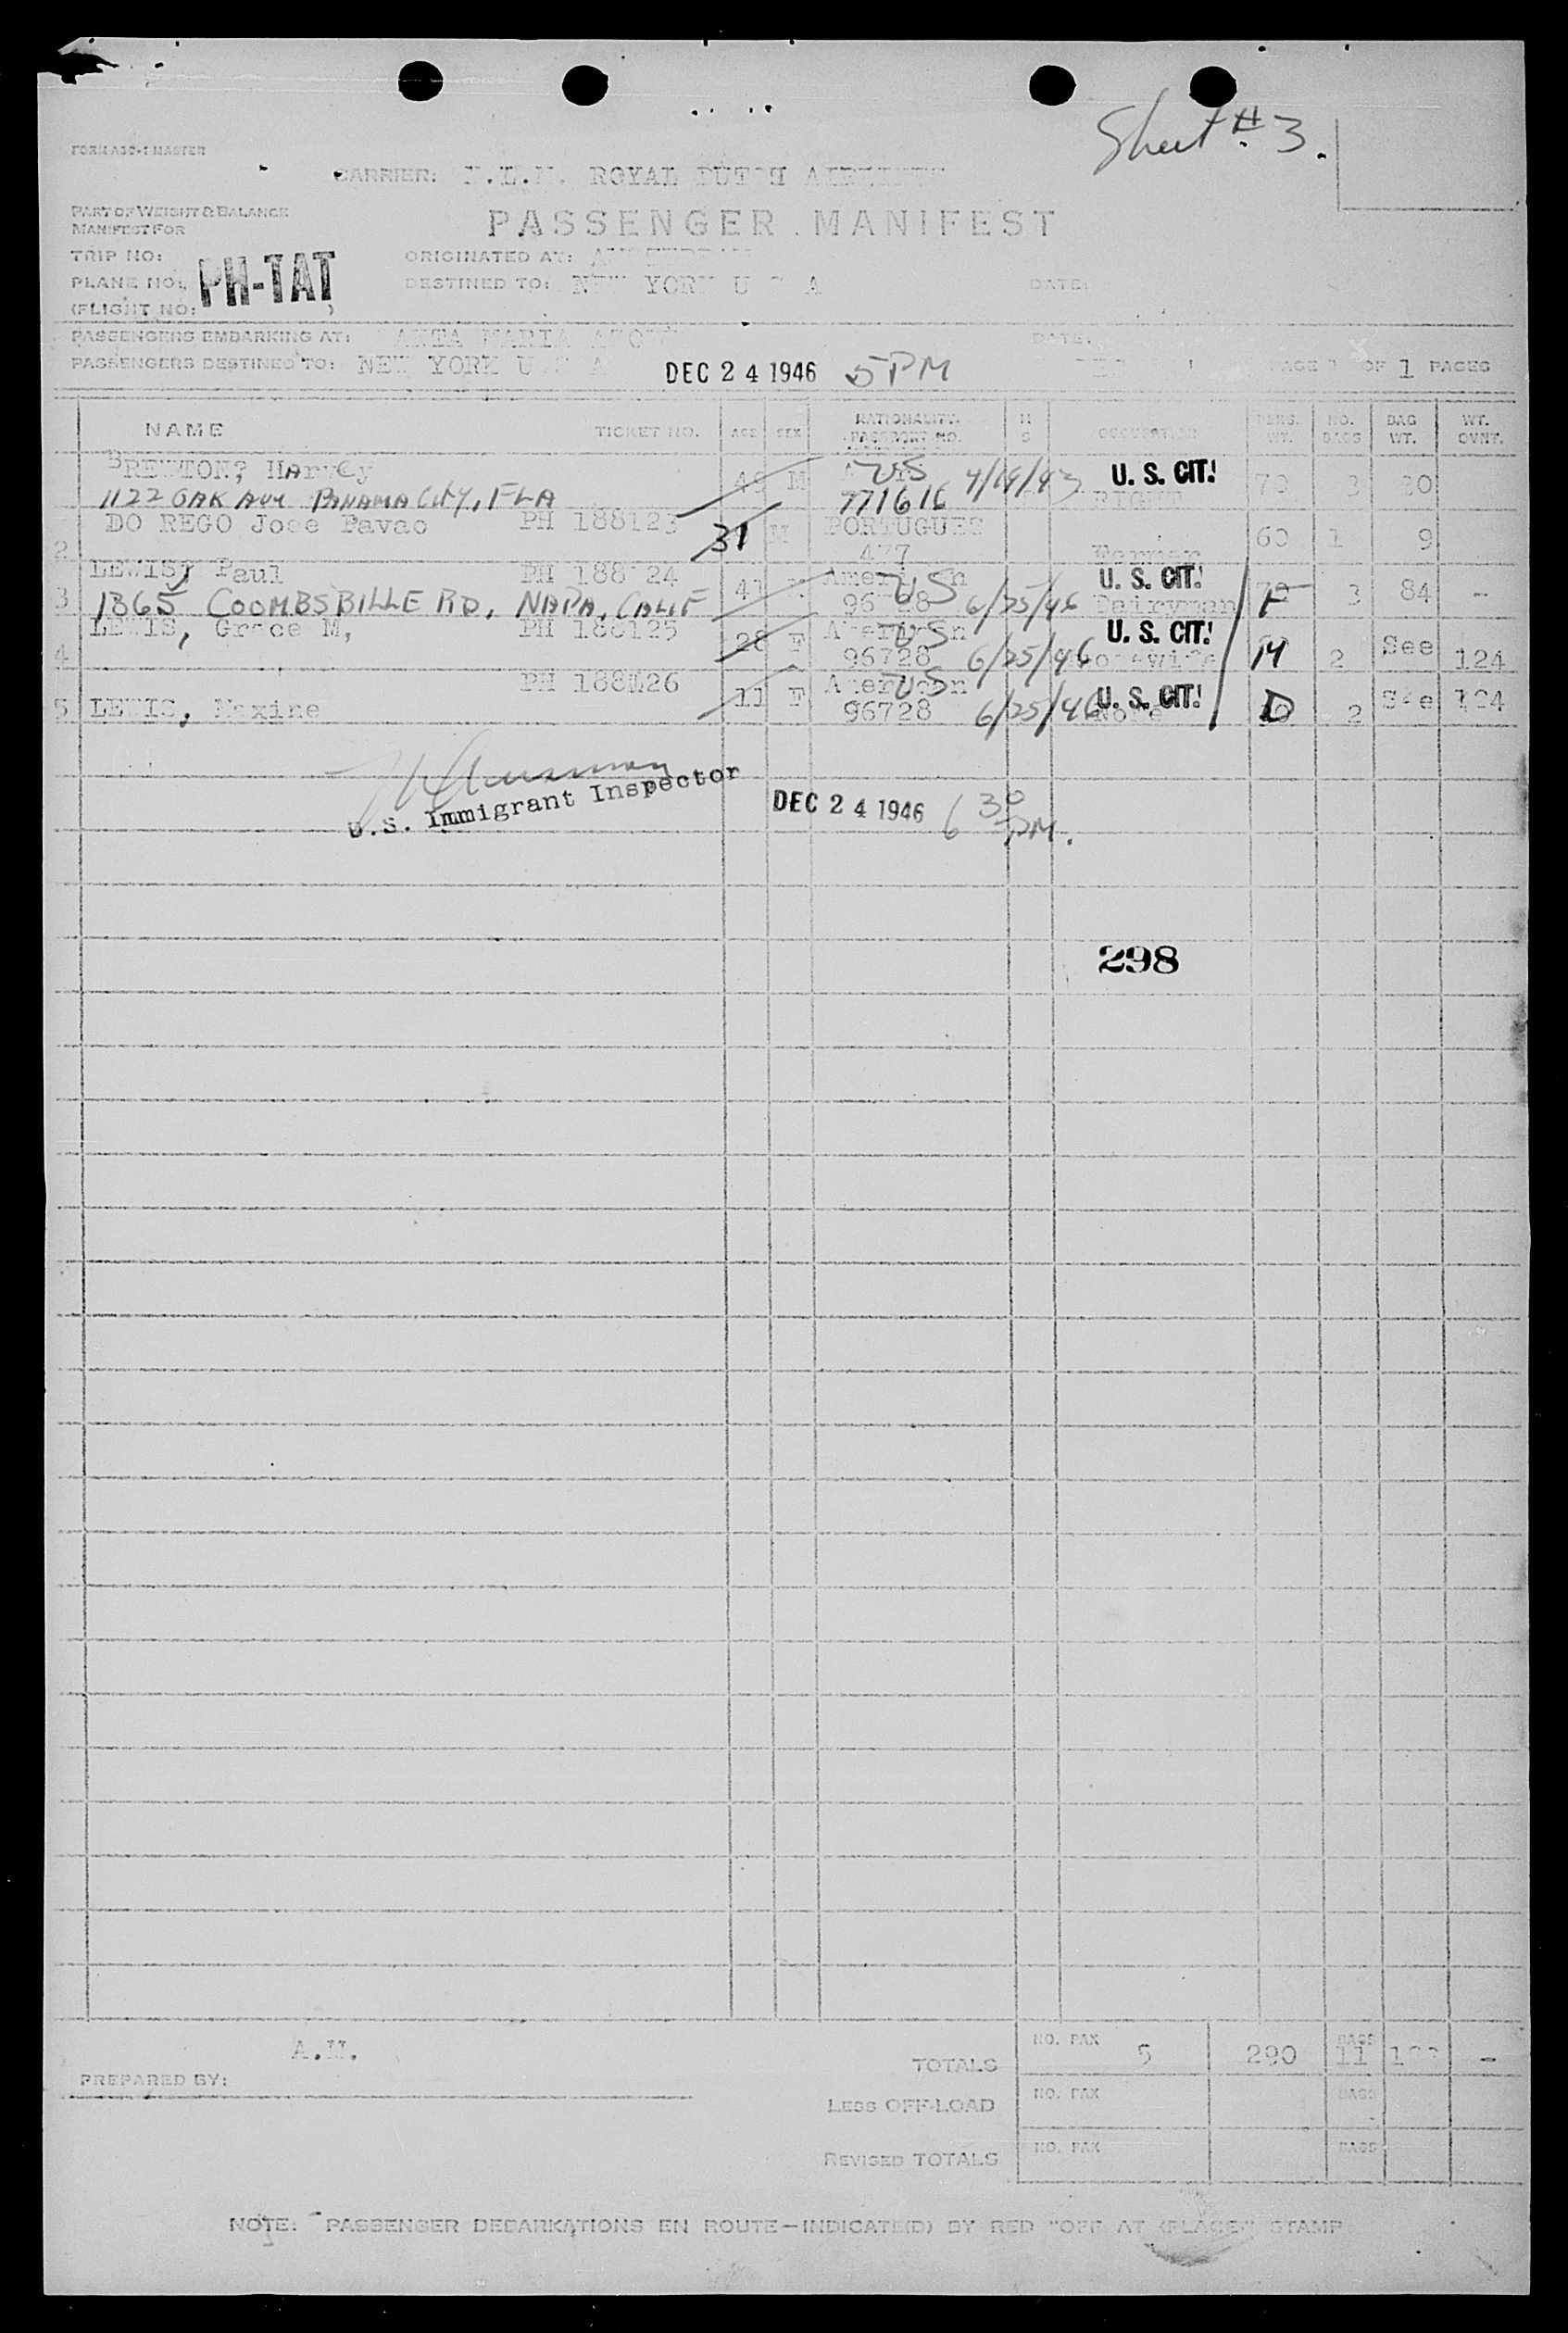 Sheet # 3.
FORM A35-1 MASTER
CARRIER: K.L.M. ROYAL DUTCH AIRLINES
PART OF WEIGHT & BALANCE
MANIFEST FOR
PASSENGER MANIFEST
TRIP NO:
ORIGINATED AT:
PLANE NO: PH-TAT
DESTINED TO: NEW YORK U S A
DATE:
(FLIGHT NO: )
PASSENGERS EMBARKING AT: ANTA MARIA
DATE:
PASSENGERS DESTINED TO: NEW YORK U S A DEC 24 1946 5 PM
PAGE 1 OF 1 PAGES
NAME TICKET NO. AGE SEX NATIONALITY. PASSPORT NO. OCCUPATION PERS. WT. NO. BAGS BAG WT. WT. OVNT.
BREWTON? HArvey M US 4/19/43 U. S. CIT. 70 3 30
1122 OAK AVE PANAMA CITY, FLA 771616
2 DO REGO Jose Pavao PH 188123 31 M PORTUGUES 477 Farmer 60 1 9
LEWIS, Paul PH 188124 41 American US U. S. CIT. 3 84 -
3 1865 COOMBSBILLE RD, NAPA, CALIF 96728 6/25/46 Dairyman F
LEWIS, Grace M, PH 188125 28 F American US U. S. CIT. See
4 96728 6/25/46 Housewife M 2 124
PH 188126 11 F American US U. S. CIT. See 124
5 LEWIS, Maxine 96728 6/25/46 None D 2
U.S. Immigrant Inspector
DEC 24 1946 6 30 PM.
298
A.M.
PREPARED BY:
TOTALS NO. PAX 5 290 BAGS 11 -
LESS OFF-LOAD NO. PAX BAGS
REVISED TOTALS NO. PAX BAGS
NOTE: PASSENGER DEBARKATIONS EN ROUTE—INDICATE(D) BY RED "OFF AT (PLACE)" STAMP